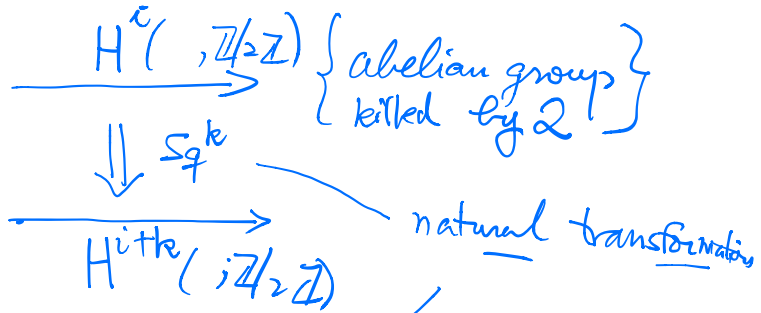 H^i( , ℤ/2ℤ) {abelian group
killed by 2}
⇓ Sq^k
natural transformation
H^{i+k}( ; ℤ/2ℤ)